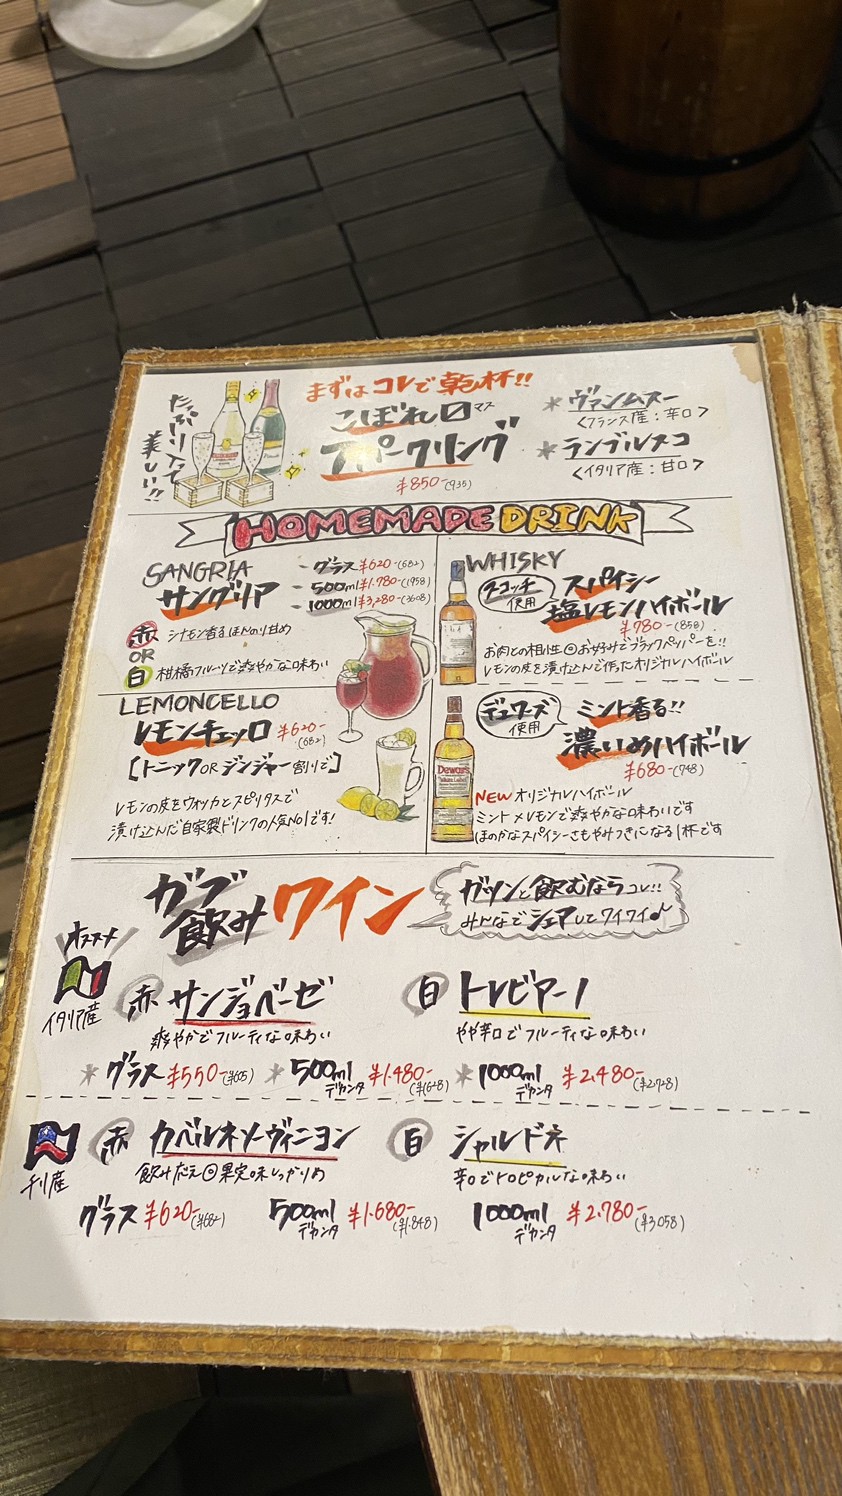 まずはコレで乾杯!!
たっぷり入って
美しい!!
こぼれ〼マス
スパークリング
¥850-(935)
* ヴァンムスー
<フランス産:辛口>
* ランブルスコ
<イタリア産:甘口>
HOMEMADE DRINK
SANGRIA
サングリア
- グラス ¥620-(682)
- 500ml ¥1.780-(1958)
- 1000ml ¥3,280-(3608)
赤 シナモン香るほんのり甘め
OR
白 柑橘フルーツで爽やかな味わい
LEMONCELLO
レモンチェッロ ¥620-
(682)
[トニックORジンジャー割りで]
レモンの皮をウオッカとスピリタスで
漬け込んだ自家製ドリンクの人気No1です!
WHISKY
スコッチ
使用
スパイシー
塩レモンハイボール
¥780-(858)
お肉との相性◎お好みでブラックペッパーを!!
レモンの皮を漬け込んで作ったオリジナルハイボール
デュワーズ
使用
ミント香る!!
濃いめハイボール
¥680-(748)
Dewar's
NEW オリジナルハイボール
ミント×レモンで爽やかな味わいです
ほのかなスパイシーさもやみつきになる1杯です
ガブ
飲みワイン
ガツンと飲むならコレ!!
みんなでシェアしてワイワイ♪
オススメ
イタリア産
赤 サンジョベーゼ
爽やかでフルーティな味わい
白 トレビアーノ
やや辛口でフルーティな味わい
* グラス ¥550-(¥605)
* 500ml デカンタ ¥1.480-(¥1628)
* 1000ml デカンタ ¥2,480-(¥2.728)
チリ産
赤 カベルネソーヴィニヨン
飲みごたえ◎果実味しっかりめ
白 シャルドネ
辛口でトロピカルな味わい
グラス ¥620-(¥682)
500ml デカンタ ¥1.680-(¥1.848)
1000ml デカンタ ¥2.780-(¥3058)